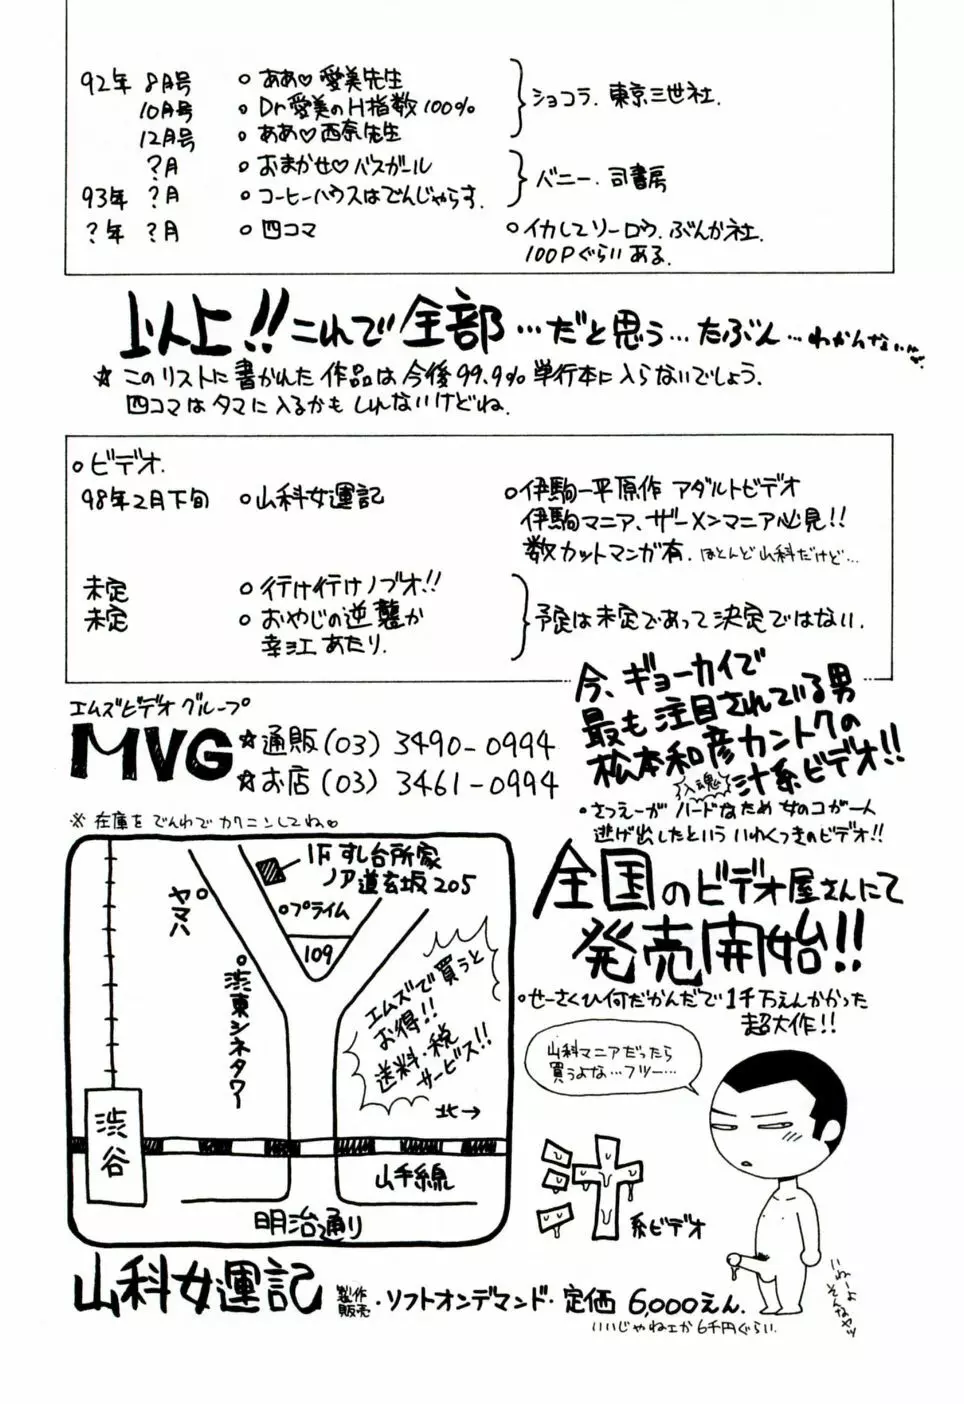 92年 8月号 ○ ああ♡愛美先生
10月号 ○ Dr愛美のH指数100%
12月号 ○ ああ♡西奈先生
ショコラ. 東京三世社.
?月 ○ おまかせ♡バスガール
93年 ?月 ○ コーヒーハウスはでんじゃらす.
バニー. 司書房
?年 ?月 ○ 四コマ ○イカしてソーロウ. ぶんか社.
100Pぐらいある.
以上!! これで全部…だと思う…たぶん…わかんない
☆このリストに書かれた作品は今後99.9%単行本に入らないでしょう.
四コマはタマに入るかもしれないけどね.
○ビデオ.
98年2月下旬 ○山科女運記 ○伊駒一平原作 アダルトビデオ
伊駒マニア、ザーメンマニア必見!!
数カットマンガ有. ほとんど山科だけど…
未定 ○行け行けノブオ!!
未定 ○おやじの逆襲か
幸江あたり.
予定は未定であって決定ではない.
エムズビデオグループ
MVG ☆通販(03)3490-0994
☆お店(03)3461-0994
※在庫をでんわでカクニンしてね♡
今、ギョーカイで
最も注目されている男
松本和彦カントクの
入魂 汁系ビデオ!!
・さつえーがハードなため女のコが一人
逃げ出したといういわくつきのビデオ!!
全国のビデオ屋さんにて
発売開始!!
○せーさくひ何だかんだで1千万えんかかった
超大作!!
1Fすし台所家
ノア道玄坂205
ヤマハ
○プライム
109
○渋東シネタワー
エムズで買うと
お得!!
送料・税
サービス!!
北→
渋谷
山手線
明治通り
山科マニアだったら
買うよな…フツー…
汁系ビデオ
いねーよ
そんなヤツ
山科女運記 製作 販売・ソフトオンデマンド・定価 6,000えん.
いいじゃねェか6千円ぐらい.